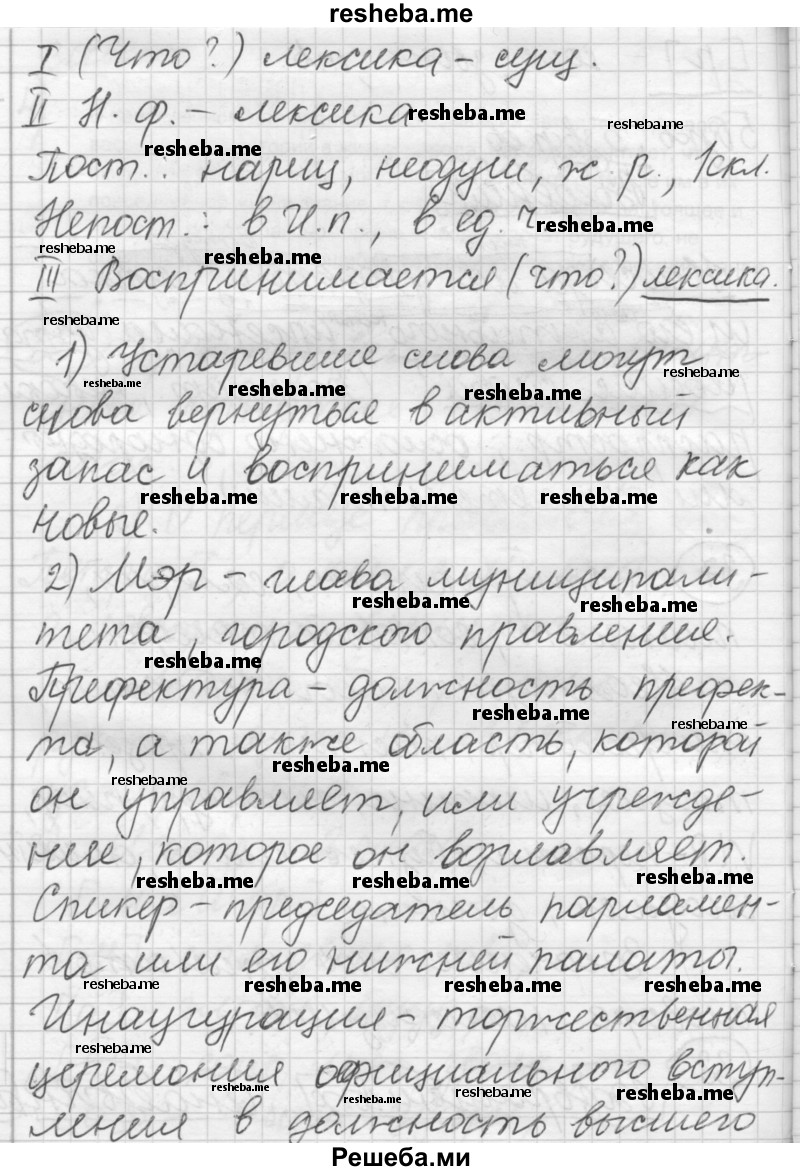 resheba.me
I (Что?) лексика – сущ.
II Н. ф. – лексика. resheba.me
resheba.me
resheba.me
Пост.: нариц, неодуш, ж. р., 1скл.
Непост.: в И.п., в ед. ч resheba.me
resheba.me resheba.me
III Воспринимается (что?) лексика.
resheba.me
1) Устаревшие слова могут
resheba.me resheba.me resheba.me resheba.me
снова вернуться в активный
запас и восприниматься как
resheba.me resheba.me resheba.me
новые.
2) Мэр – глава муниципали-
resheba.me resheba.me
тета, городского правления.
resheba.me
Префектура – должность префек-
resheba.me resheba.me
та, а также область, которой
resheba.me resheba.me
он управляет, или учрежде-
ние, которое он возглавляет.
resheba.me resheba.me resheba.me
Спикер – председатель парламен-
та или его нижней палаты.
resheba.me resheba.me resheba.me resheba.me
Инаугурация – торжественная
resheba.me
церемония официального вступ-
resheba.me resheba.me resheba.me resheba.me
ления в должность высшего
Решеба.ми